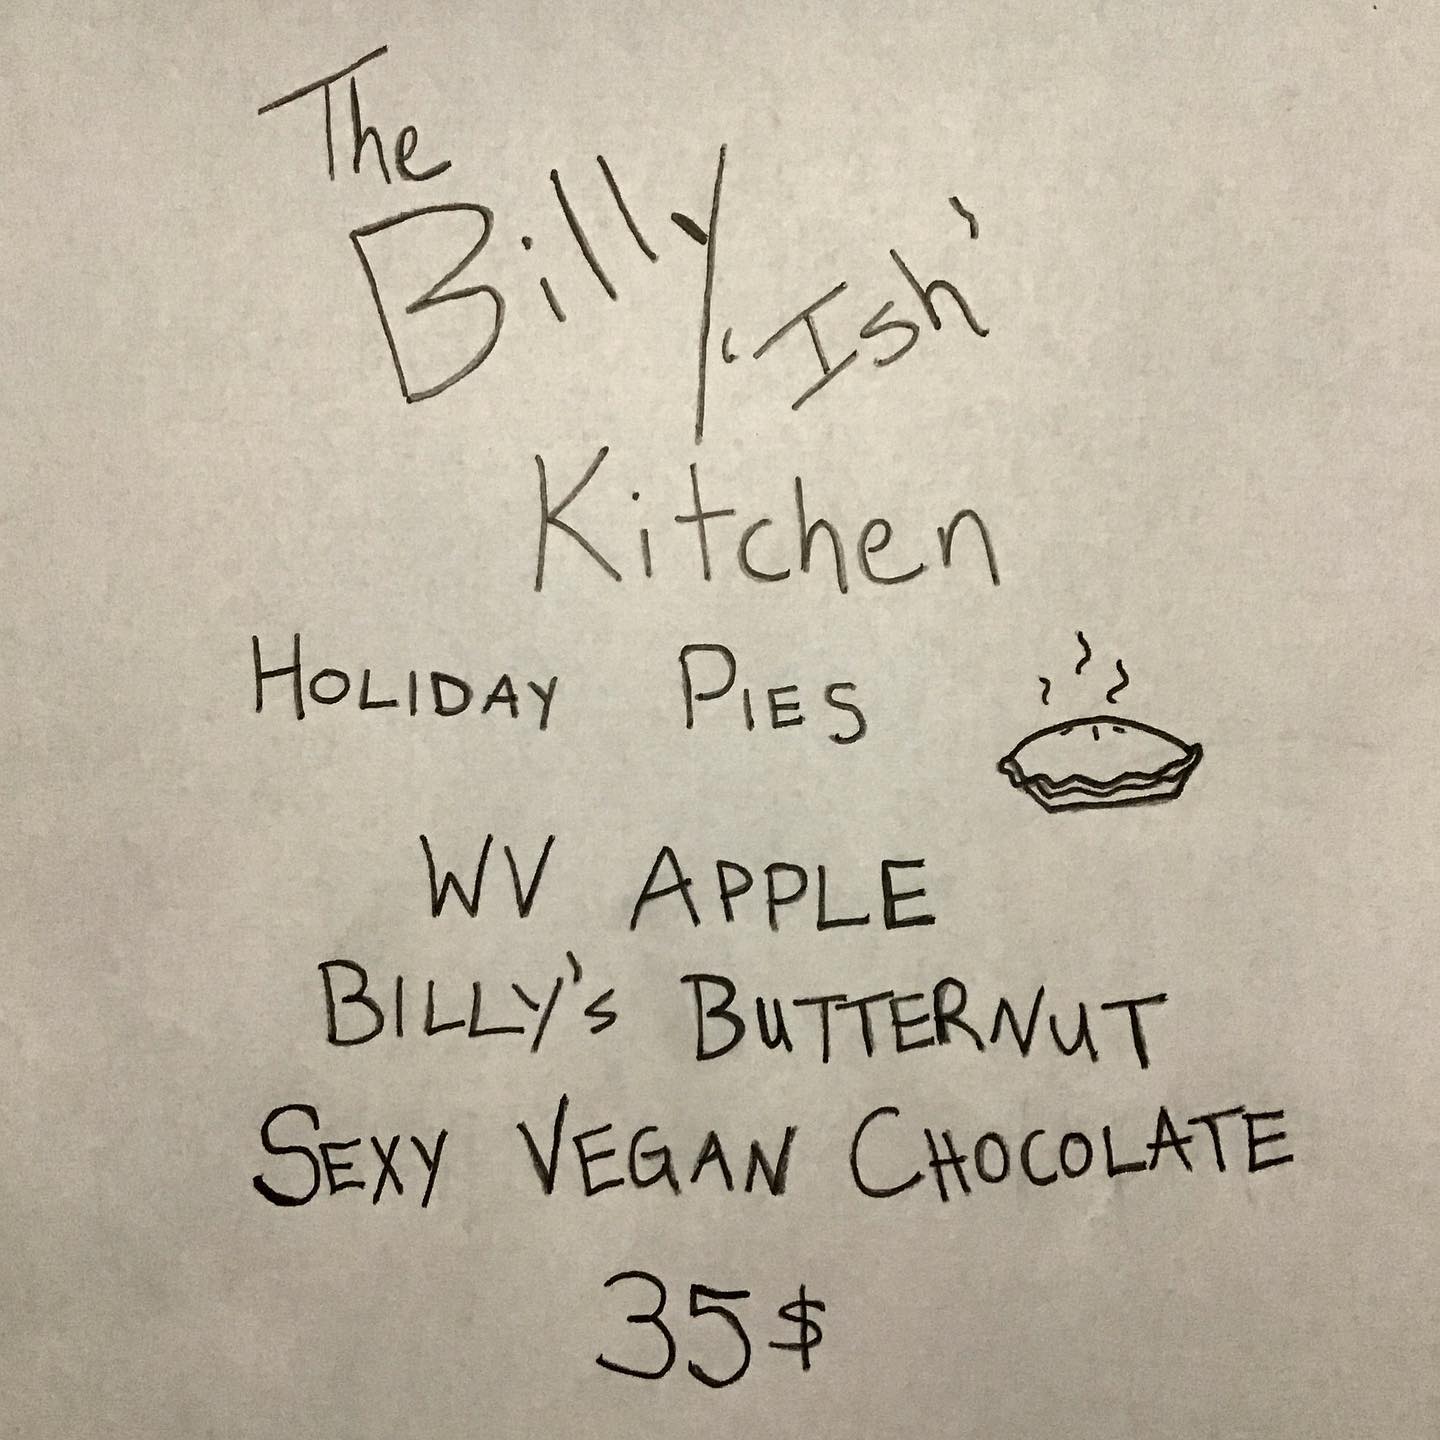 The
Billy 'Ish'
Kitchen
HOLIDAY PIES
WV APPLE
BILLY'S BUTTERNUT
SEXY VEGAN CHOCOLATE
35$